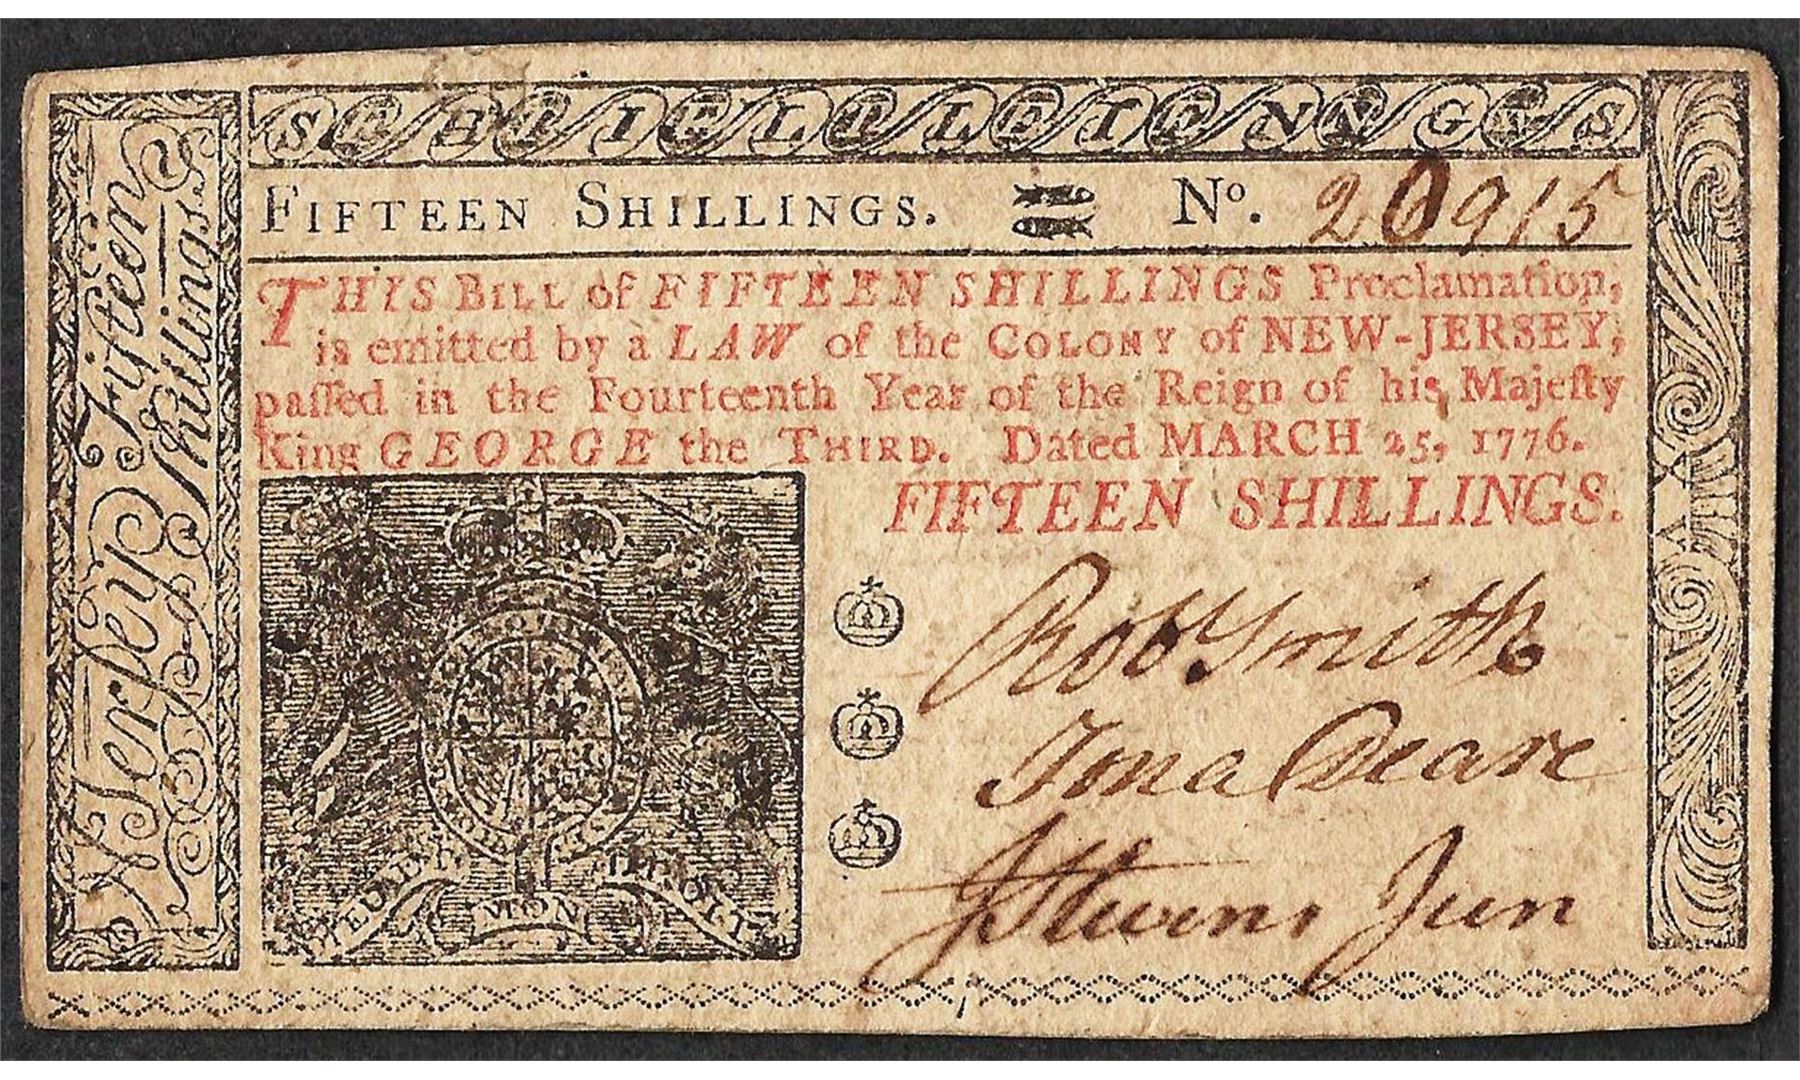 SFHIIFLTLEIENNGNS
FIFTEEN SHILLINGS. No. 20915
THIS BILL of FIFTEEN SHILLINGS Proclamation,
is emitted by a LAW of the COLONY of NEW-JERSEY,
paſſed in the Fourteenth Year of the Reign of his Majeſty
King GEORGE the THIRD. Dated MARCH 25, 1776.
FIFTEEN SHILLINGS.
Fifteen Shillings
N Jerſey
DIEU ET
MON
DROIT
Rob Smith
Jona Deare
J Stevens Jun